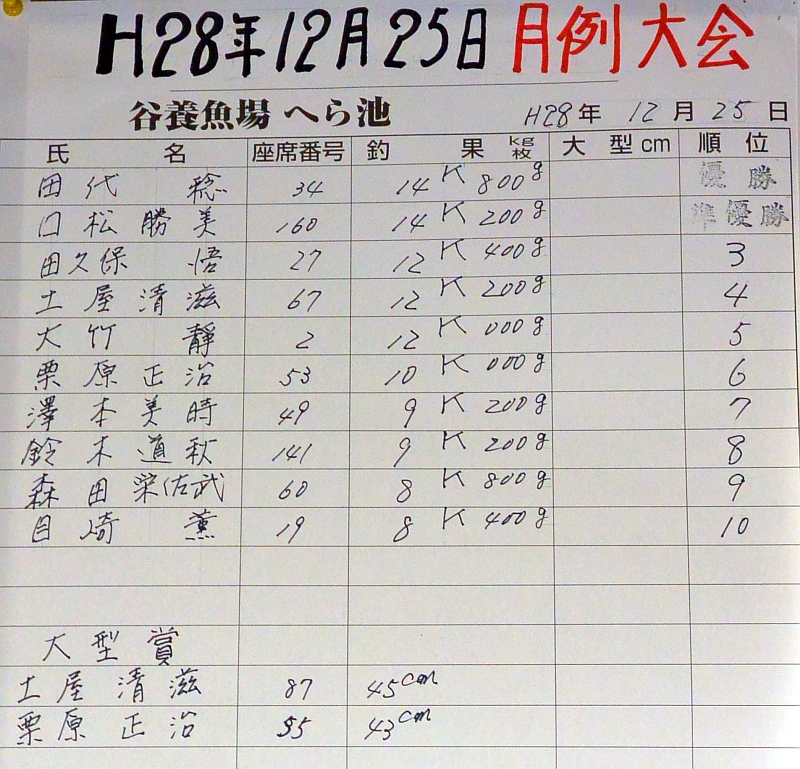 H28年12月25日 月例大会
谷養魚場 へら池 H28年 12月 25日
氏 名 座席番号 釣 果 kg枚 大 型cm 順 位
田代 稔 34 14K800g 優勝
口松勝美 160 14K200g 準優勝
田久保 悟 27 12K400g 3
土屋清滋 67 12K200g 4
大竹 靜 2 12K000g 5
栗原正治 53 10K000g 6
澤本美時 49 9K200g 7
鈴木道秋 141 9K200g 8
森田栄佐武 60 8K800g 9
目崎 薫 19 8K400g 10
大型賞
土屋清滋 87 45cm
栗原正治 55 43cm